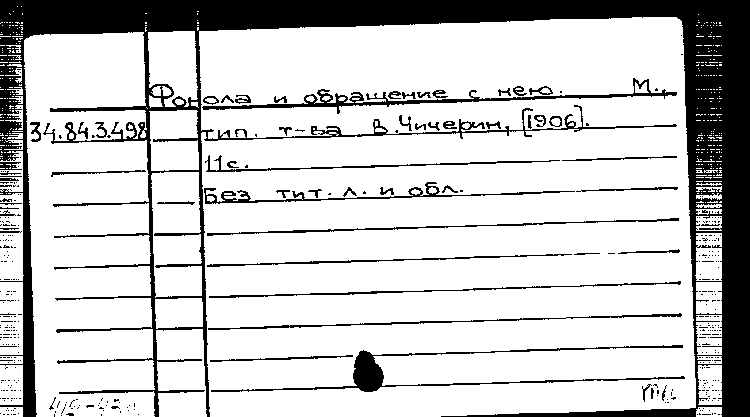 Фонола и обращение с нею. М.,
34.84.3.498 тип. т-ва В.Чичерин, [1906].
11с.
Без тит. л. и обл.